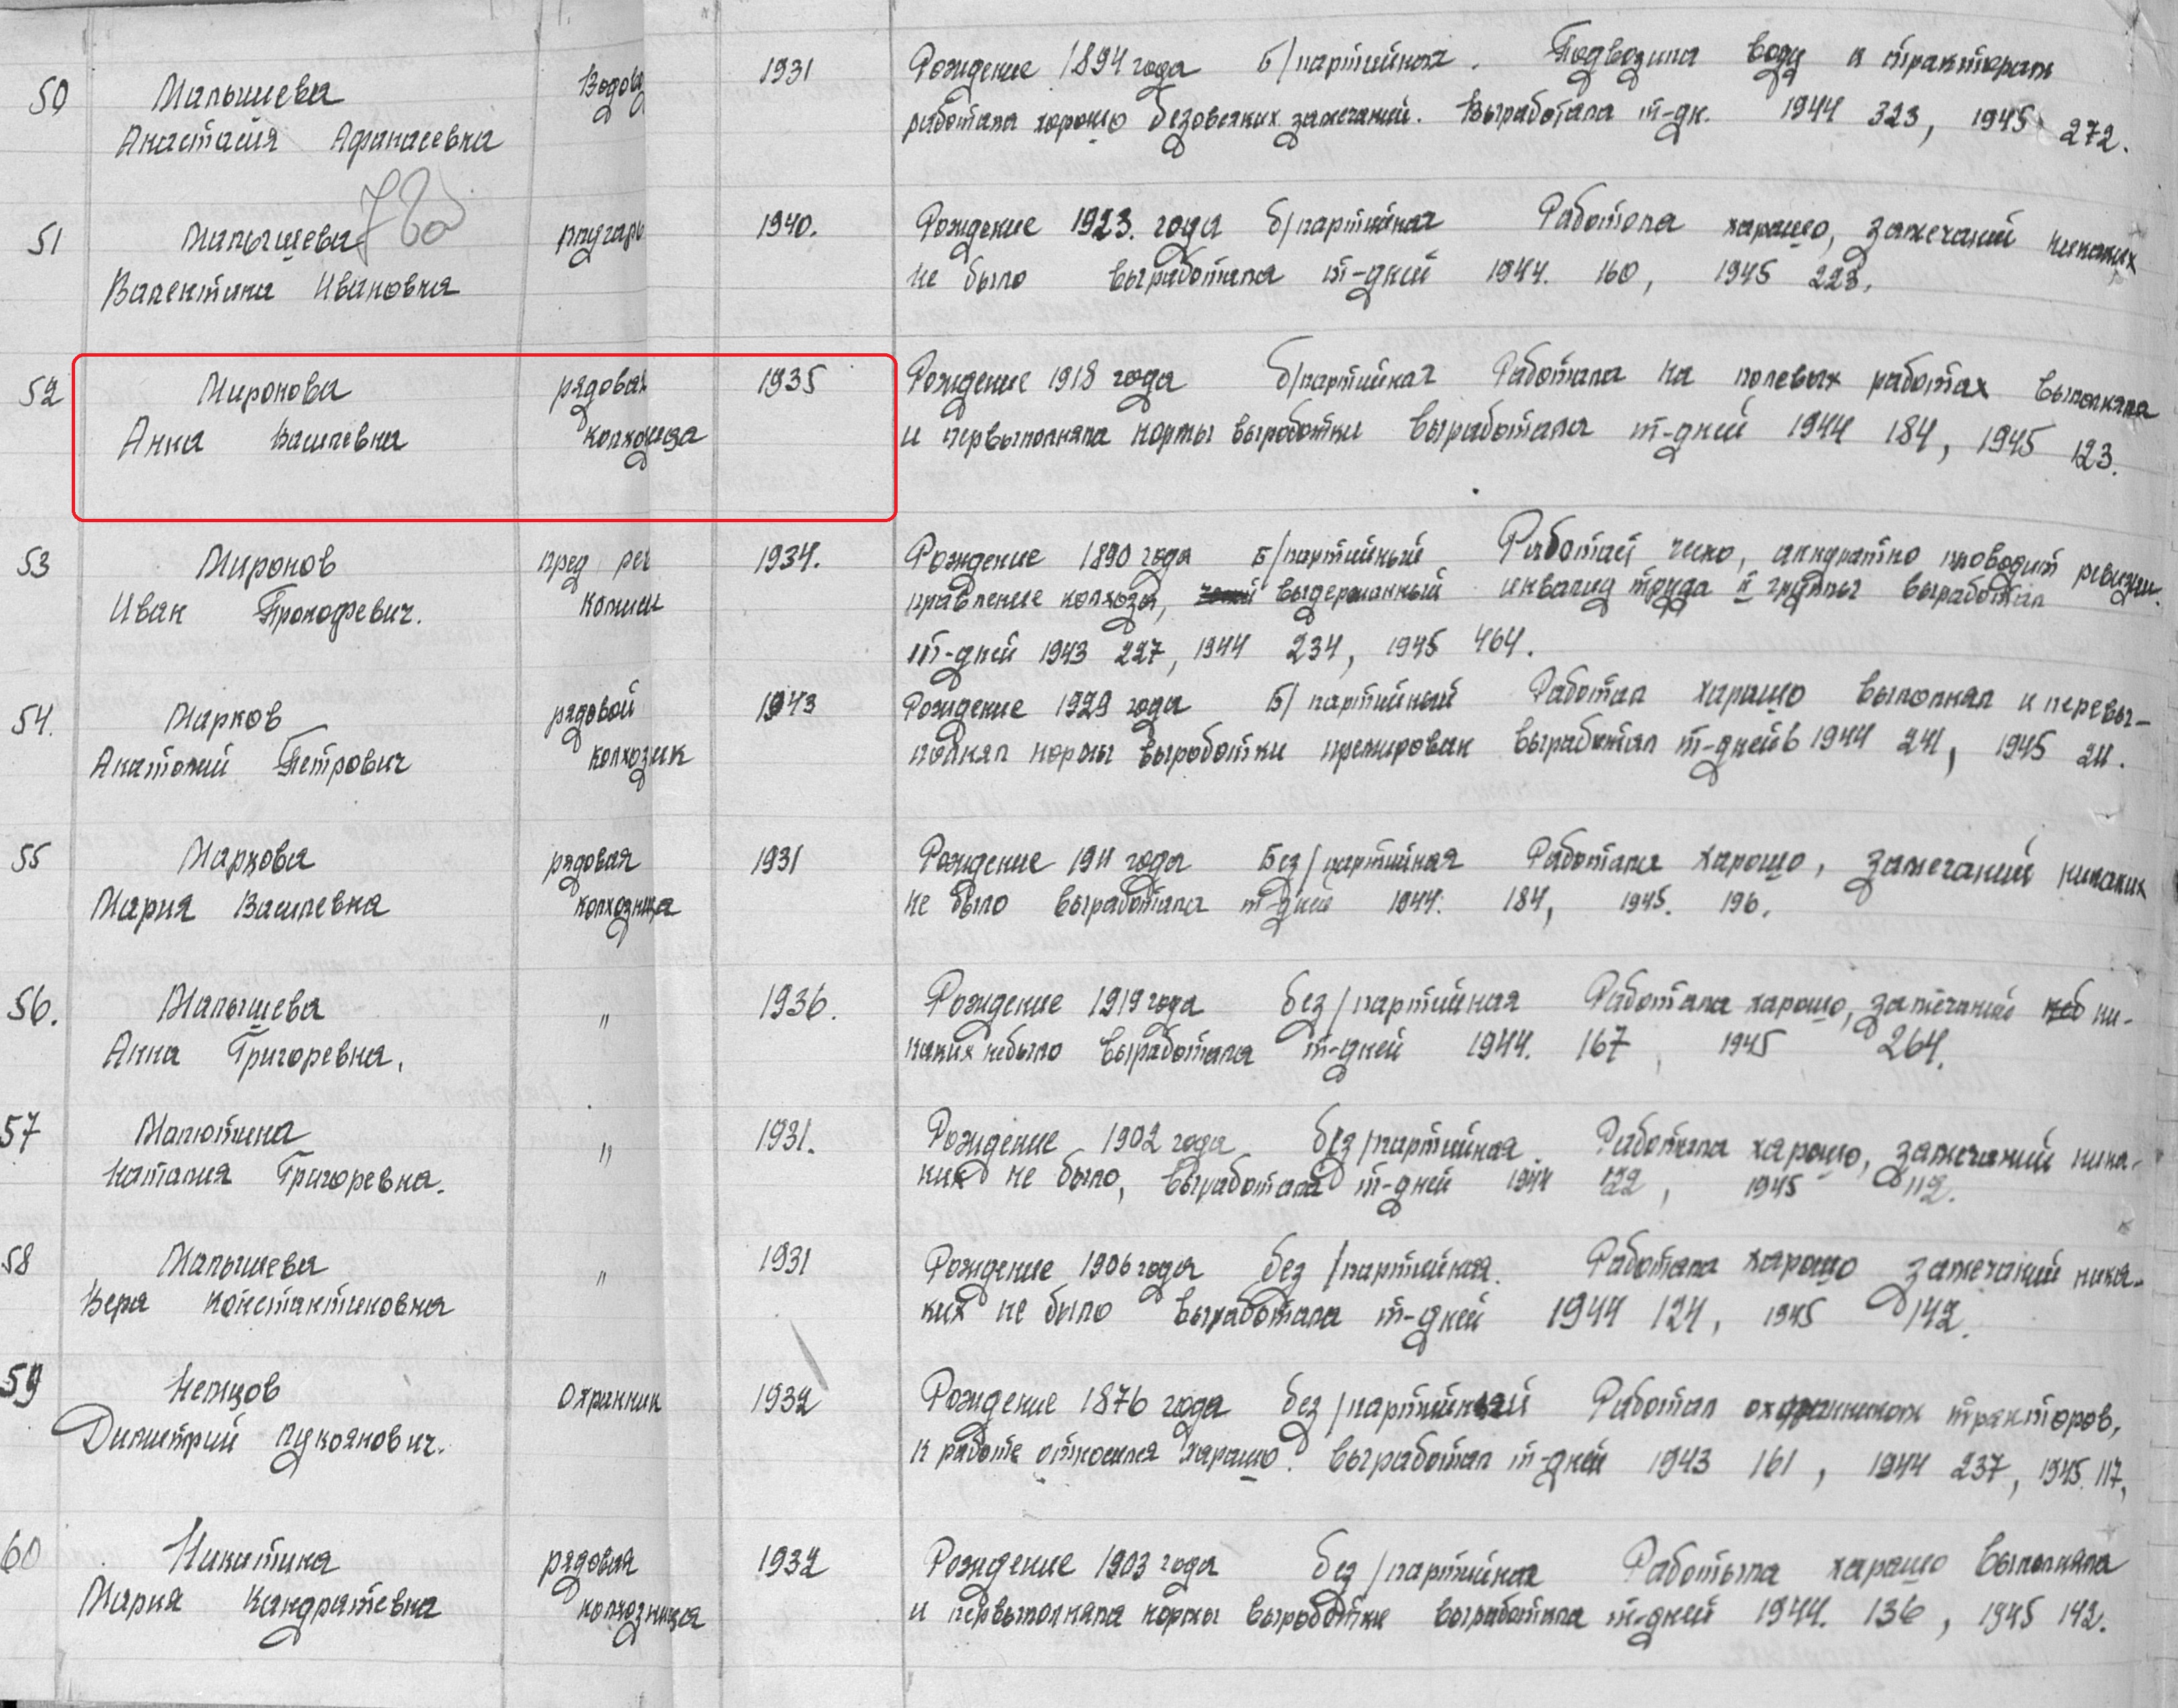 50 Малышева Водов 1931 Рождение 1894 года Б/партийная. Подвозила воду к тракторам
Анастасия Афанасевна работала хорошо безовсяких замечаний. Выработала т-дн. 1944 323, 1945 272.
51 Малышева 1940. Рождение 1923. года б/партийная Работала харашо, замечаний никаких
Валентина Ивановна не было выработала т-дней 1944. 160, 1945 223.
52 Миронова рядовая 1935 Рождение 1918 года б/партийная Работала на полевых работах выполняла
Анна Василевна колхозница и первыполняла нормы выработки выработала т-дней 1944 184, 1945 123.
53 Миронов пред рев 1934. Рождение 1890 года Б/партийный Работает, проводит ревизии.
Иван Прокофевич. комиси правление колхоза, выдержанный инвалид труда II группы выработал
т-дней 1943 227, 1944 234, 1945 464.
54. Марков рядовой 1943 Рождение 1929 года Б/партийный Работал харашо выполнял и перевы-
Анатолий Петрович колхозник полнял нормы выработки премирован выработал т-дней в 1944 241, 1945 211.
55 Маркова рядовая 1931 Рождение 1911 года Без/партийная Работала харашо, замечаний никаких
Мария Василевна колхозница не было выработала т-дней 1944. 184, 1945. 196.
56. Малышева " 1936. Рождение 1919 года без/партийная Работала харашо, замечаний ни-
Анна Григоревна. каких небыло выработала т-дней 1944. 167, 1945 264.
57 Малютина " 1931. Рождение 1902 года без/партийная. Работала харашо, замечаний ника-
Наталия Григоревна. ких не было, выработала т-дней 1944, 1945 112.
58 Малышева " 1931 Рождение 1906 года без/партийная. Работала харашо замечаний ника-
Вера Константиновна ких не было выработала т-дней 1944 124, 1945 142.
59 Немцов Охранник 1932 Рождение 1876 года без/партийный Работал охранником тракторов,
Дмитрий Лукоянович. к работе относился харашо. выработал т-дней 1943 161, 1944 237, 1945. 117,
60 Никитина рядовая 1932 Рождение 1903 года без/партийная Работала харашо выполняла
Мария Кандратевна колхозница и первыполняла нормы выработки выработала т-дней 1944. 136, 1945 142.